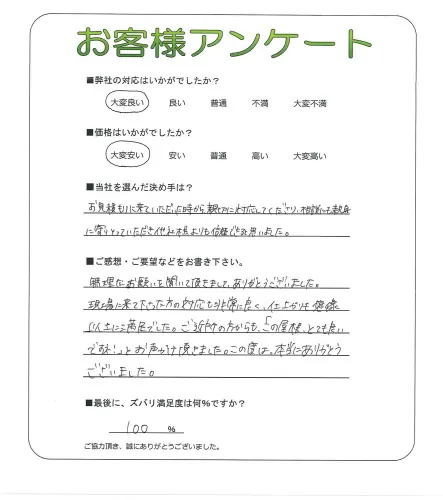 お客様アンケート
■弊社の対応はいかがでしたか?
大変良い 良い 普通 不満 大変不満
■価格はいかがでしたか?
大変安い 安い 普通 高い 大変高い
■当社を選んだ決め手は?
お見積もりに来ていただいた時から、親切に対応してくださり、相談にも親身
に寄りそっていただき他社様よりも信頼できると思いました。
■ご感想・ご要望などをお書き下さい。
無理なお願いを聞いて頂きまして、ありがとうございました。
現場に来て下さった方の対応も非常に良く、仕上がりも想像
以上に満足でした。ご近所の方からも、「この屋根、とても良い
ですね!」とお声かけ頂きました。この度は、本当にありがとう
ございました。
■最後に、ズバリ満足度は何%ですか?
100 %
ご協力頂き、誠にありがとうございました。